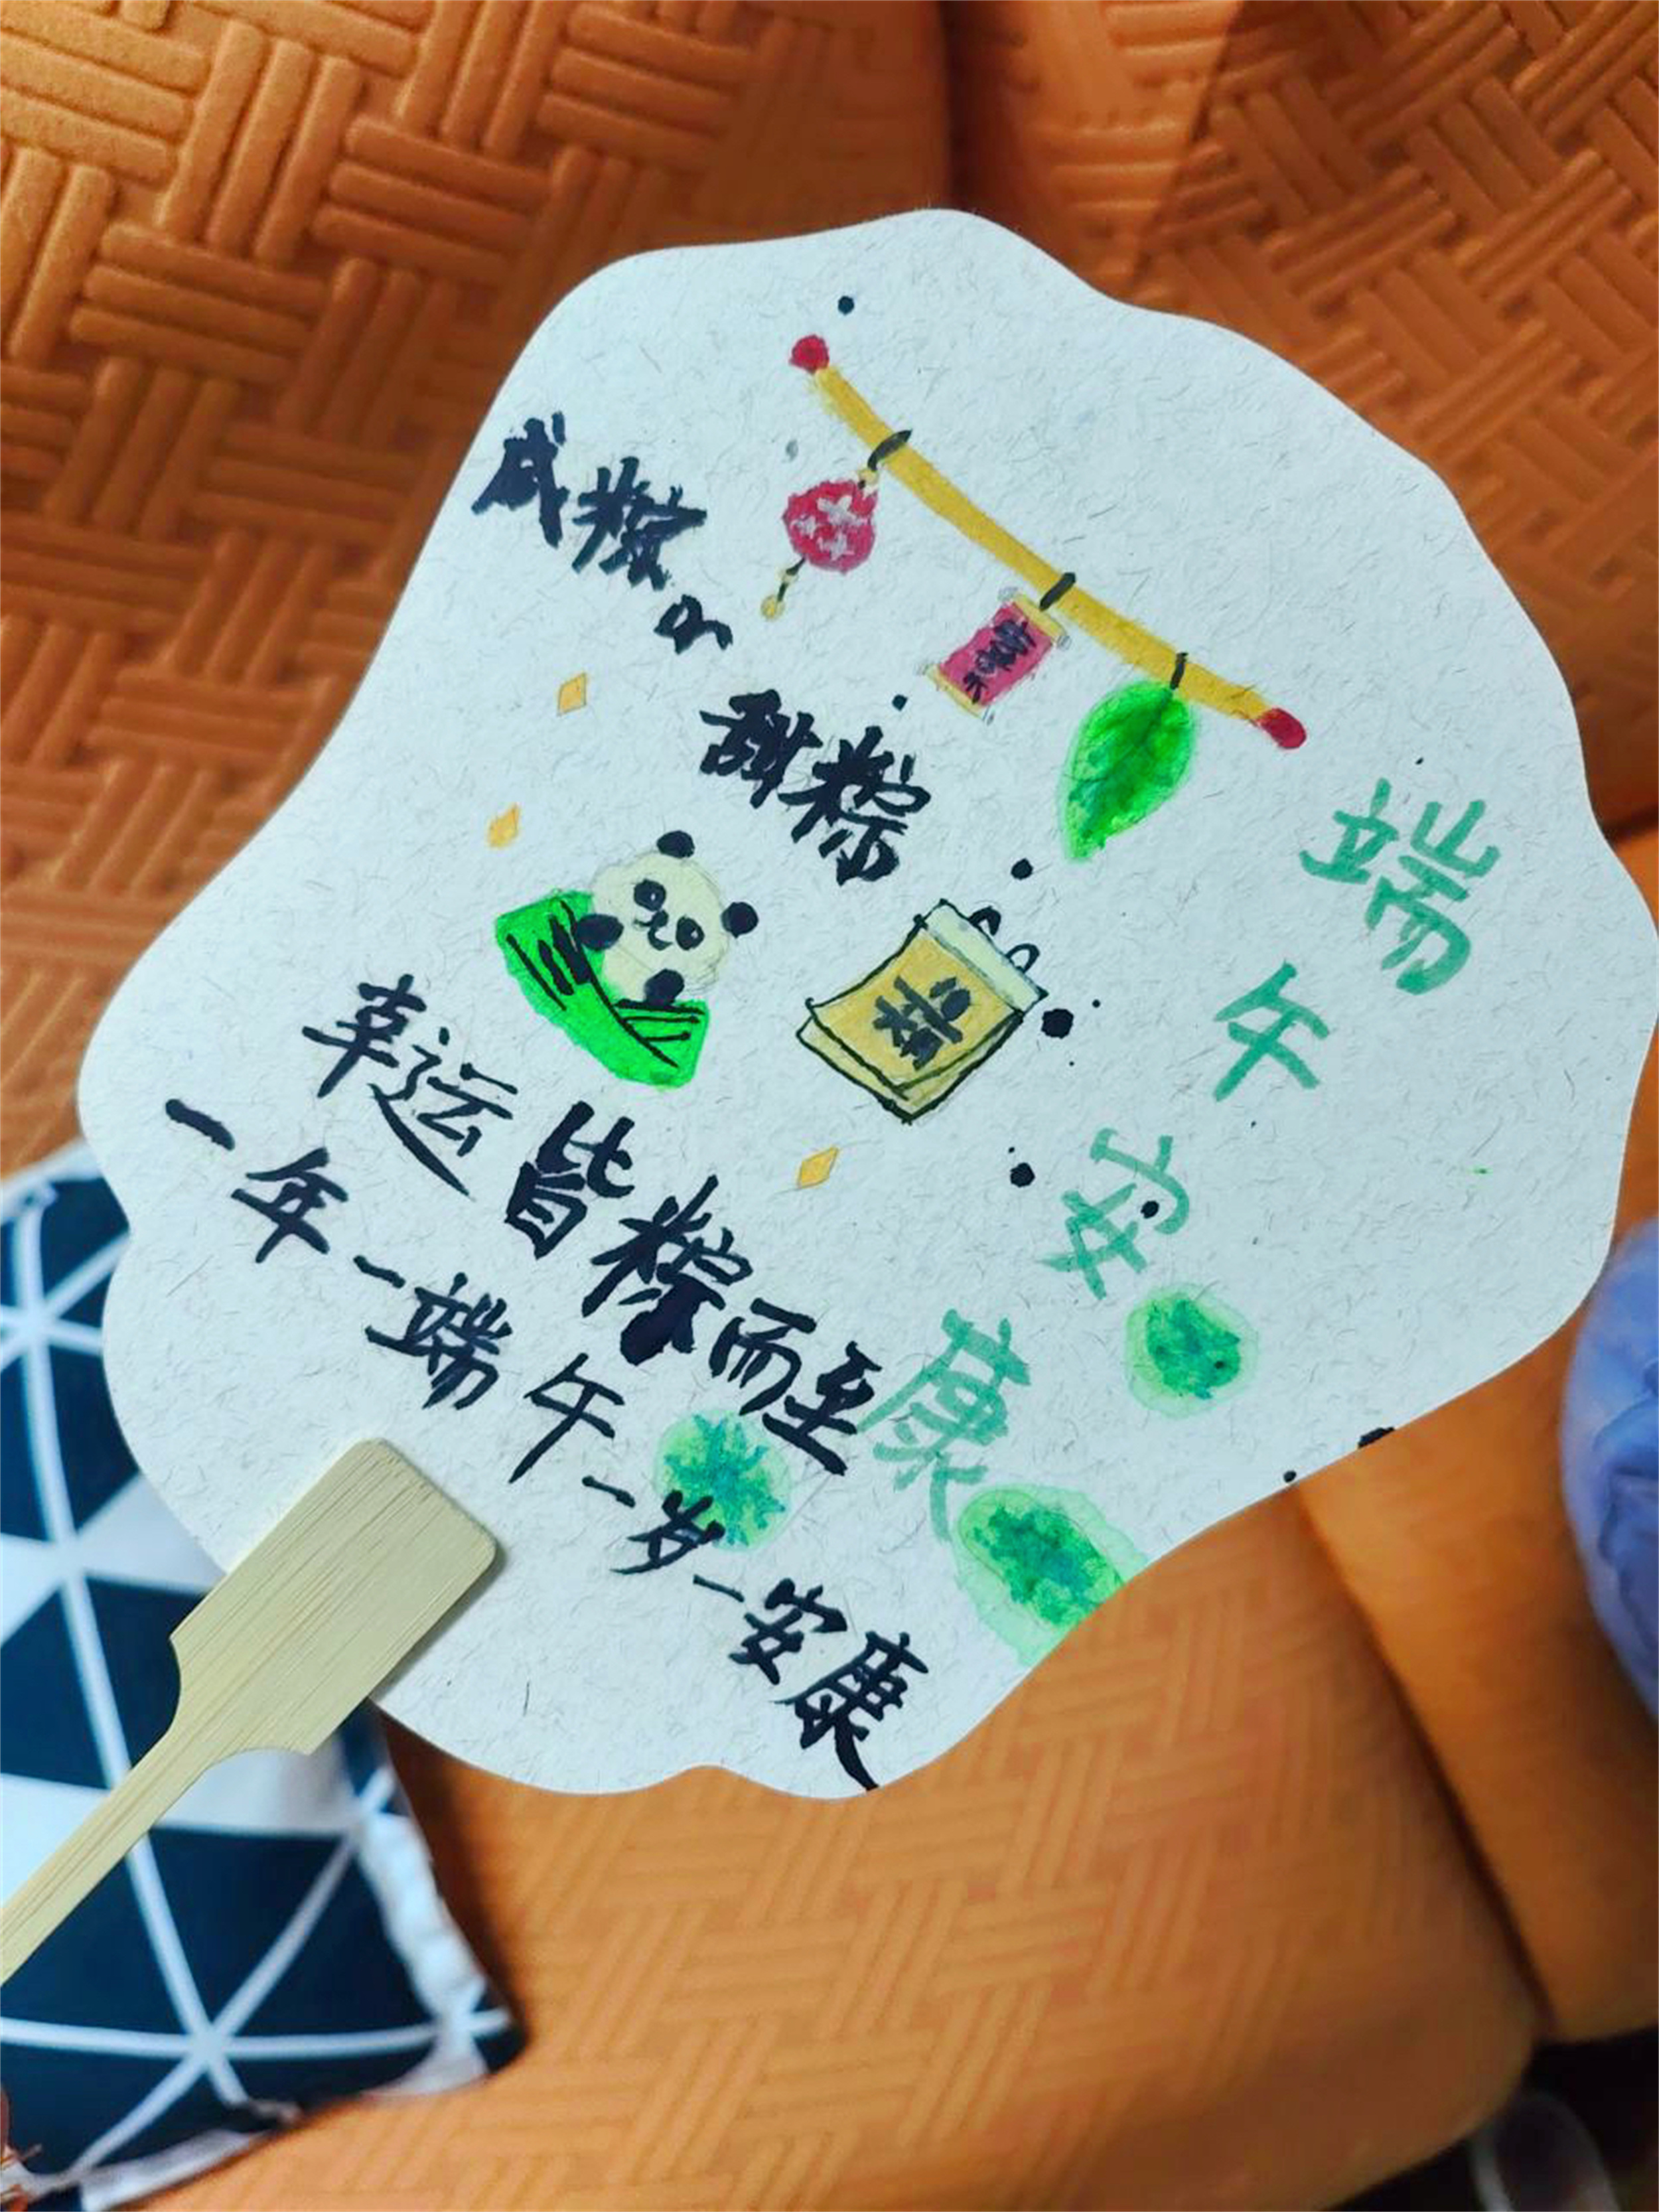 端午安康
咸粽
or
甜粽
幸运皆粽而至
一年一端午一岁一安康